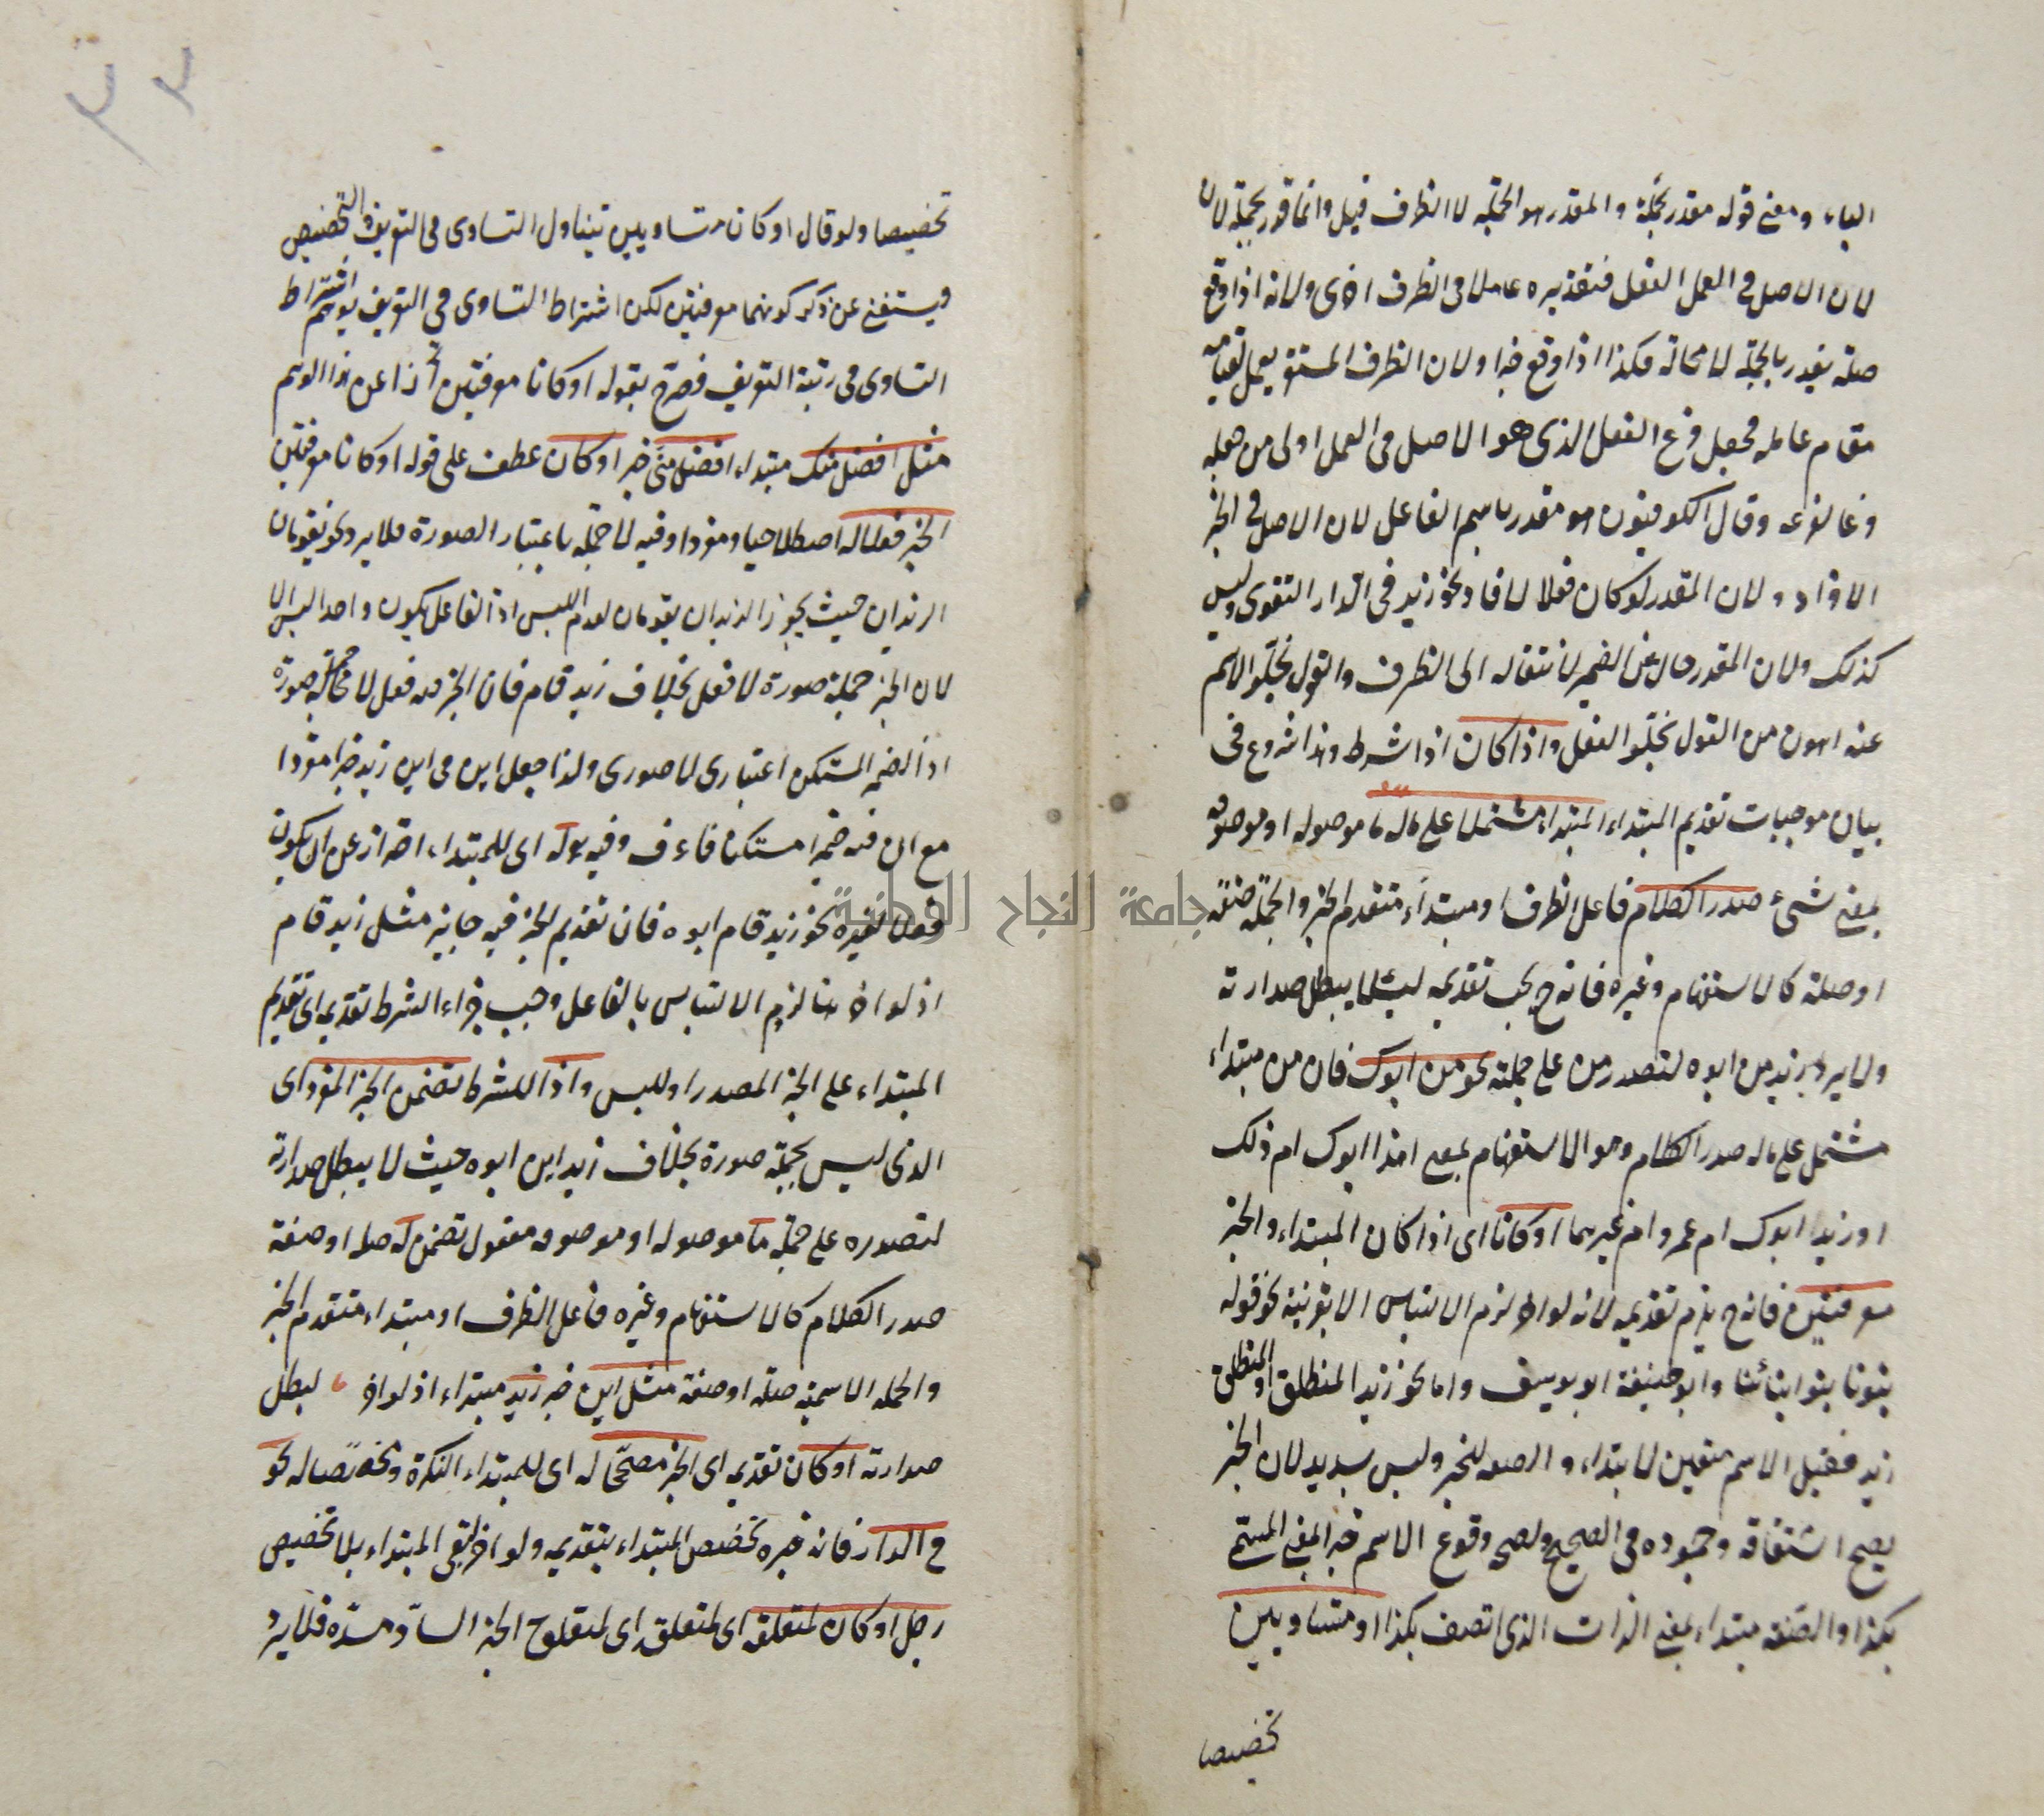 الباء ومعنى قوله مقدر بجملة والمقدر هو الجملة لا الظرف قيل وانما قدر بجملة لان
لان الاصل فى العمل الفعل فتقديره عاملا فى الظرف احرى ولانه اذا وقع
صلة يقدر بالجملة لا محالة فكذا اذا وقع خبرا ولان الظرف المستقر يعمل لقيامه
مقام عامله فجعل فرع الفعل الذى هو الاصل فى العمل اولى من جعله
فرعا لفرعه وقال الكوفيون هو مقدر باسم الفاعل لان الاصل فى الخبر
الافراد ولان المقدر لو كان فعلا لافاد نحو زيد فى الدار التقوى وليس
كذلك ولان المقدر خال عن الضمير لانتقاله الى الظرف والقول بخلو الاسم
عنه اهون من القول بخلو الفعل واذا كان اذا شرط وهذا شروع فى
بيان موجبات تقديم المبتداء المبتداء مشتملا على ماله ما موصولة او موصوفة
بمعنى شئ صدر الكلام فاعل الظرف او مبتداء متقدم الخبر والجملة صفة
او صلة كالاستفهام وغيره فانه ح يجب تقديمه لئلا يبطل صدارته
ولا يرد زيد من ابوه لتصدر من على جملته نحو من ابوك فان من مبتداء
مشتمل على ماله صدر الكلام وهو الاستفهام بمعنى اهذا ابوك ام ذلك
او زيد ابوك ام عمرو ام غيرهما او كانا اى اذا كان المبتداء والخبر
معرفتين فانه ح يلزم تقديمه لانه لو اخر لزم الالتباس الا بقرينة نحو قوله
بنونا بنو ابنائنا وابو حنيفة ابو يوسف واما نحو زيد المنطلق او المنطلق
زيد فقيل الاسم متعين للابتداء والصفة للخبر وليس بسديد لان الخبر
يصح اشتقاقه وجموده فى الصحيح ولصحة وقوع الاسم خبرا بمعنى المسمى
بكذا والصفة مبتداء بمعنى الذات الذى اتصف بكذا او متساويين
تخصيصا
تخصيصا ولو قال او كان متساويين تيناول التساوى فى التعريف والتخصيص
ويستغنى عن ذكر كونهما معرفتين لكن اشتراط التساوى فى التعريف يوهم اشتراط
التساوى فى رتبة التعريف فصرح بقوله او كانا معرفتين احترازا عن هذا الوهم
مثل افضل منك مبتداء افضل منى خبر او كان عطف على قوله او كانا معرفتين
الخبر فعلا له اصطلاحيا ومفردا وفيه لا جملة باعتبار الصورة فلا يرد نحو يقومان
الزيدان حيث يجوز الزيدان يقومان لعدم اللبس اذ الفاعل يكون واحدا
لان الخبر جملة صورة لا فعل بخلاف زيد قام فان الخبر فيه فعل لا جملة صورة
اذ الضمير المستكن اعتبارى لا صورى ولذا جعل اين فى اين زيد خبرا مفردا
مع ان فيه ضميرا مستكنا فاعرف وفيه بوله اى للمبتداء احتراز عن ان يكون
فعلا لغيره نحو زيد قام ابوه فان تقديم الخبر فيه جايز مثل زيد قام
اذ لو اخر هنا لزم الالتباس بالفاعل وجب جزاء الشرط تقديمه اى تقديم
المبتداء على الخبر المصدر او للبس واذا للشرط تضمن الخبر المفرد اى
الذى ليس بجملة صورة بخلاف زيد اين ابوه حيث لا يبطل صدارته
لتصدره على جملة ما موصولة او موصوفه مفعول تضمن له صلة او صفة
صدر الكلام كالاستفهام وغيره فاعل الظرف او مبتداء متقدم الخبر
والجملة الاسمية صلة او صفة مثل اين خبر زيد مبتداء اذ لو اخر لبطل
صدارته او كان تقديمه اى الخبر مصححا له اى للمبتداء النكرة ومخصصا له نحو
فى الدار فانه خبره تخصص المبتداء بتقديمه ولو اخر لبقى المبتداء بلا تخصيص
رجل او كان لمتعلقه اى لمتعلق اى لمتعلق الخبر الساد مسده فلا يرد
جامعة النجاح الوطنية